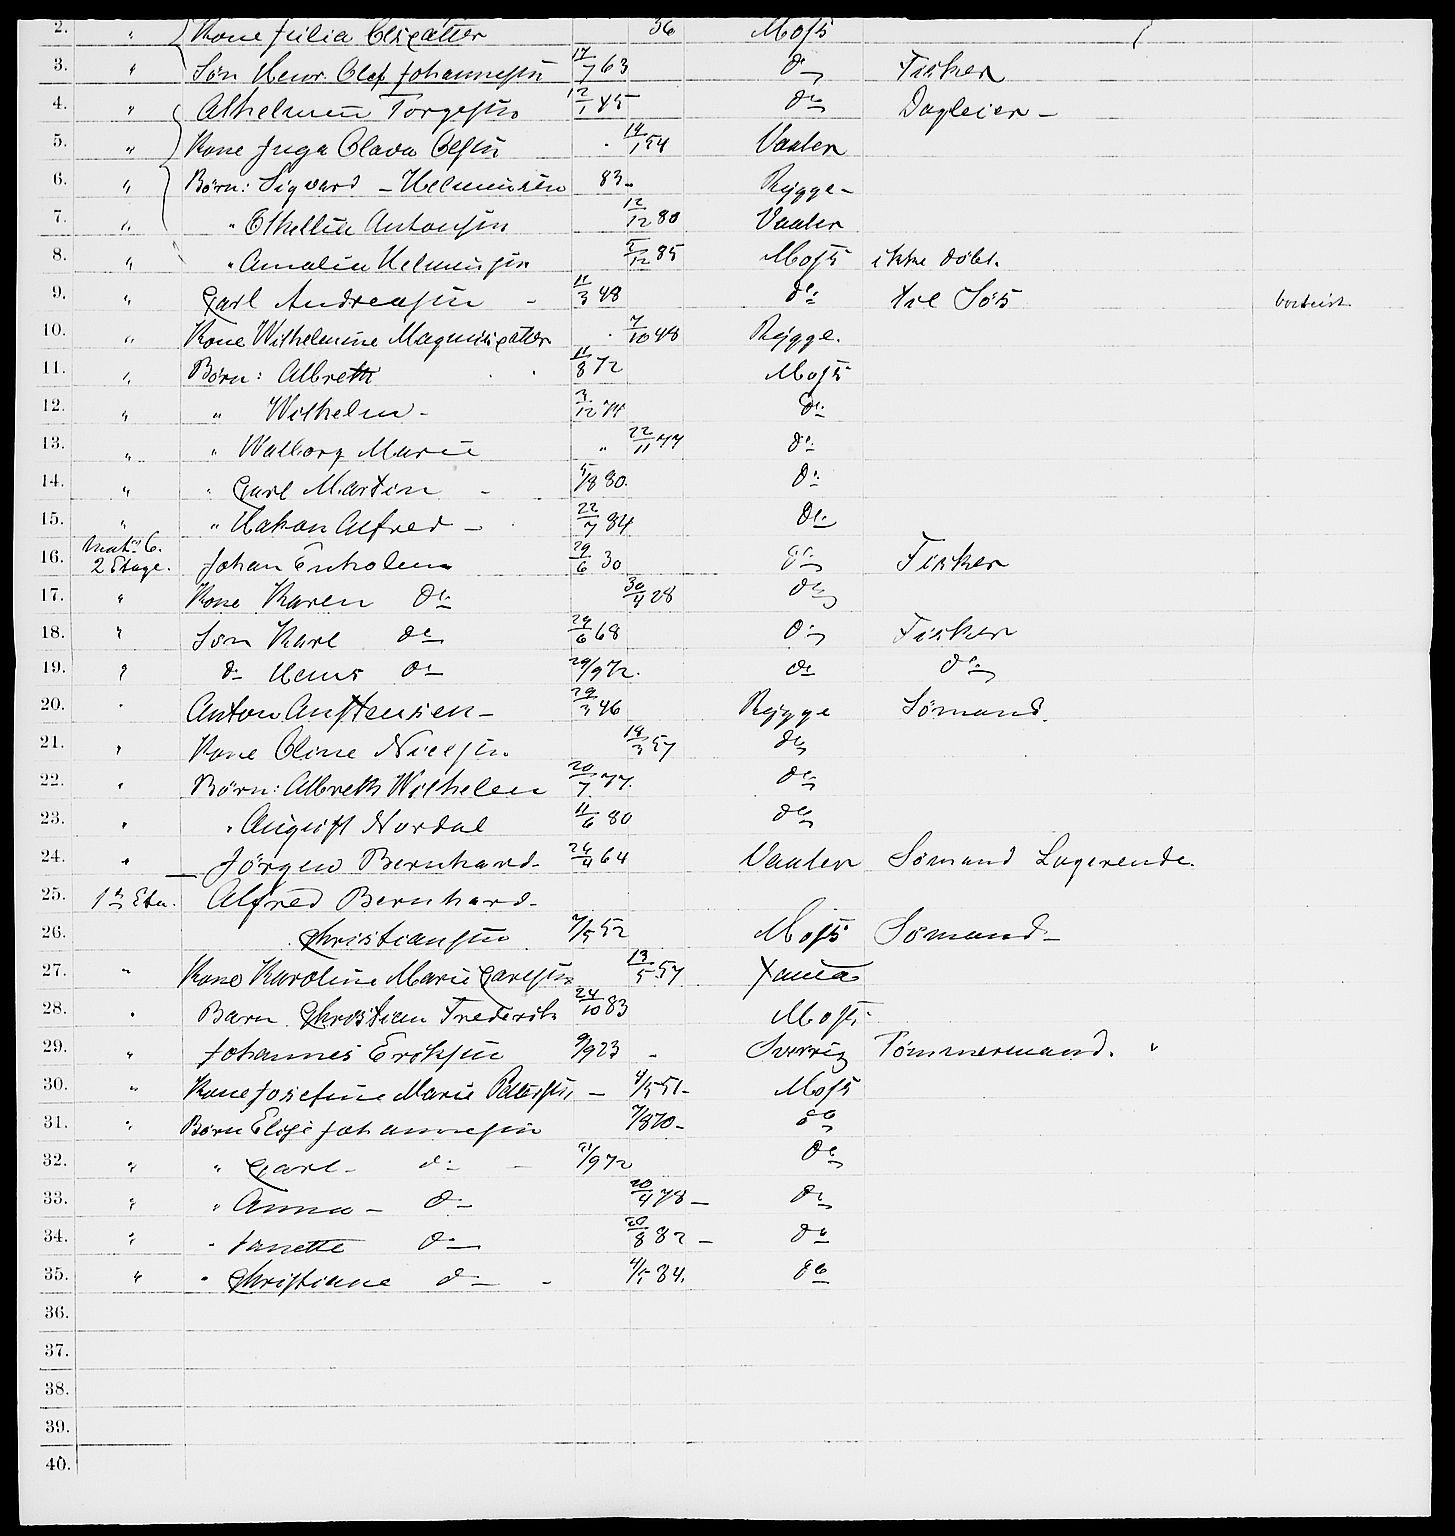 2. " Kone Julia Olsdatter 36 Moss
3. " Søn Henr. Olaf Johannesen 17/7 63 do Fisker
4. " Athelmin Torgesen 12/1 45 do Dagleier -
5. " Kone Inga Olava Olsen 14/1 54 Vaaler
6. " Børn: Sigvard - Helminsen 83. Rygge -
7. " " Othellia Antonsen 12/12 80 Vaaler
8. " " Amalia Helminsen 5/12 85 Moss ikke døbt.
9. " Carl Andreasen - 11/3 48 do til Søs bortreist
10. " Kone Wilhelmine Magnusdatter 7/10 48 Rygge.
11. " Børn: Albreth 11/8 72 Moss
12. " " Wilhelm - 3/12 74 do
13. " " Walborg Marie " 22/11 77 do
14. " " Carl Martin - 5/8 80. do
15. " " Hakon Alfred - 22/7 84 do
16. Matr. 6. 2 Etage. Johan Enholm 29/6 30 do Fisker
17. " Kone Karen do 30/4 28 do
18. " Søn Karl do 24/6 68 do Fisker
19. " do Hans do 29/9 72. do do
20. " Anton Anstensen - 29/3 46 Rygge Sømand.
21. " Kone Oline Nielsen 18/3 57 do
22. " Børn: Albreth Wilhelm 20/7 77. do
23. " " August Nordal 11/6 80 do
24. " Jørgen Bernhard - 26/4 64 Vaaler Sømand Logerende.
25. 1ste Eta. Alfred Bernhard -
26. Christiansen 7/5 52 Moss Sømand -
27. " Kone Karoline Marie Carlsen 13/5 57
28. " Barn Christian Frederik 24/10 83 Moss
29. " Johannes Eriksen 9/9 23 - Sverrig Tømmermand. "
30. " Kone Josefine Marie Pettersen - 4/5 51 - Moss
31. " Børn Elise Johannesen 7/8 70 - do
32. " " Carl - do - 21/9 72 do
33. " " Anna - do 20/4 78 - do
34. " " Janette do 20/8 82 - do
35. " " Christiane do - 4/5 84. do
36.
37.
38.
39.
40.